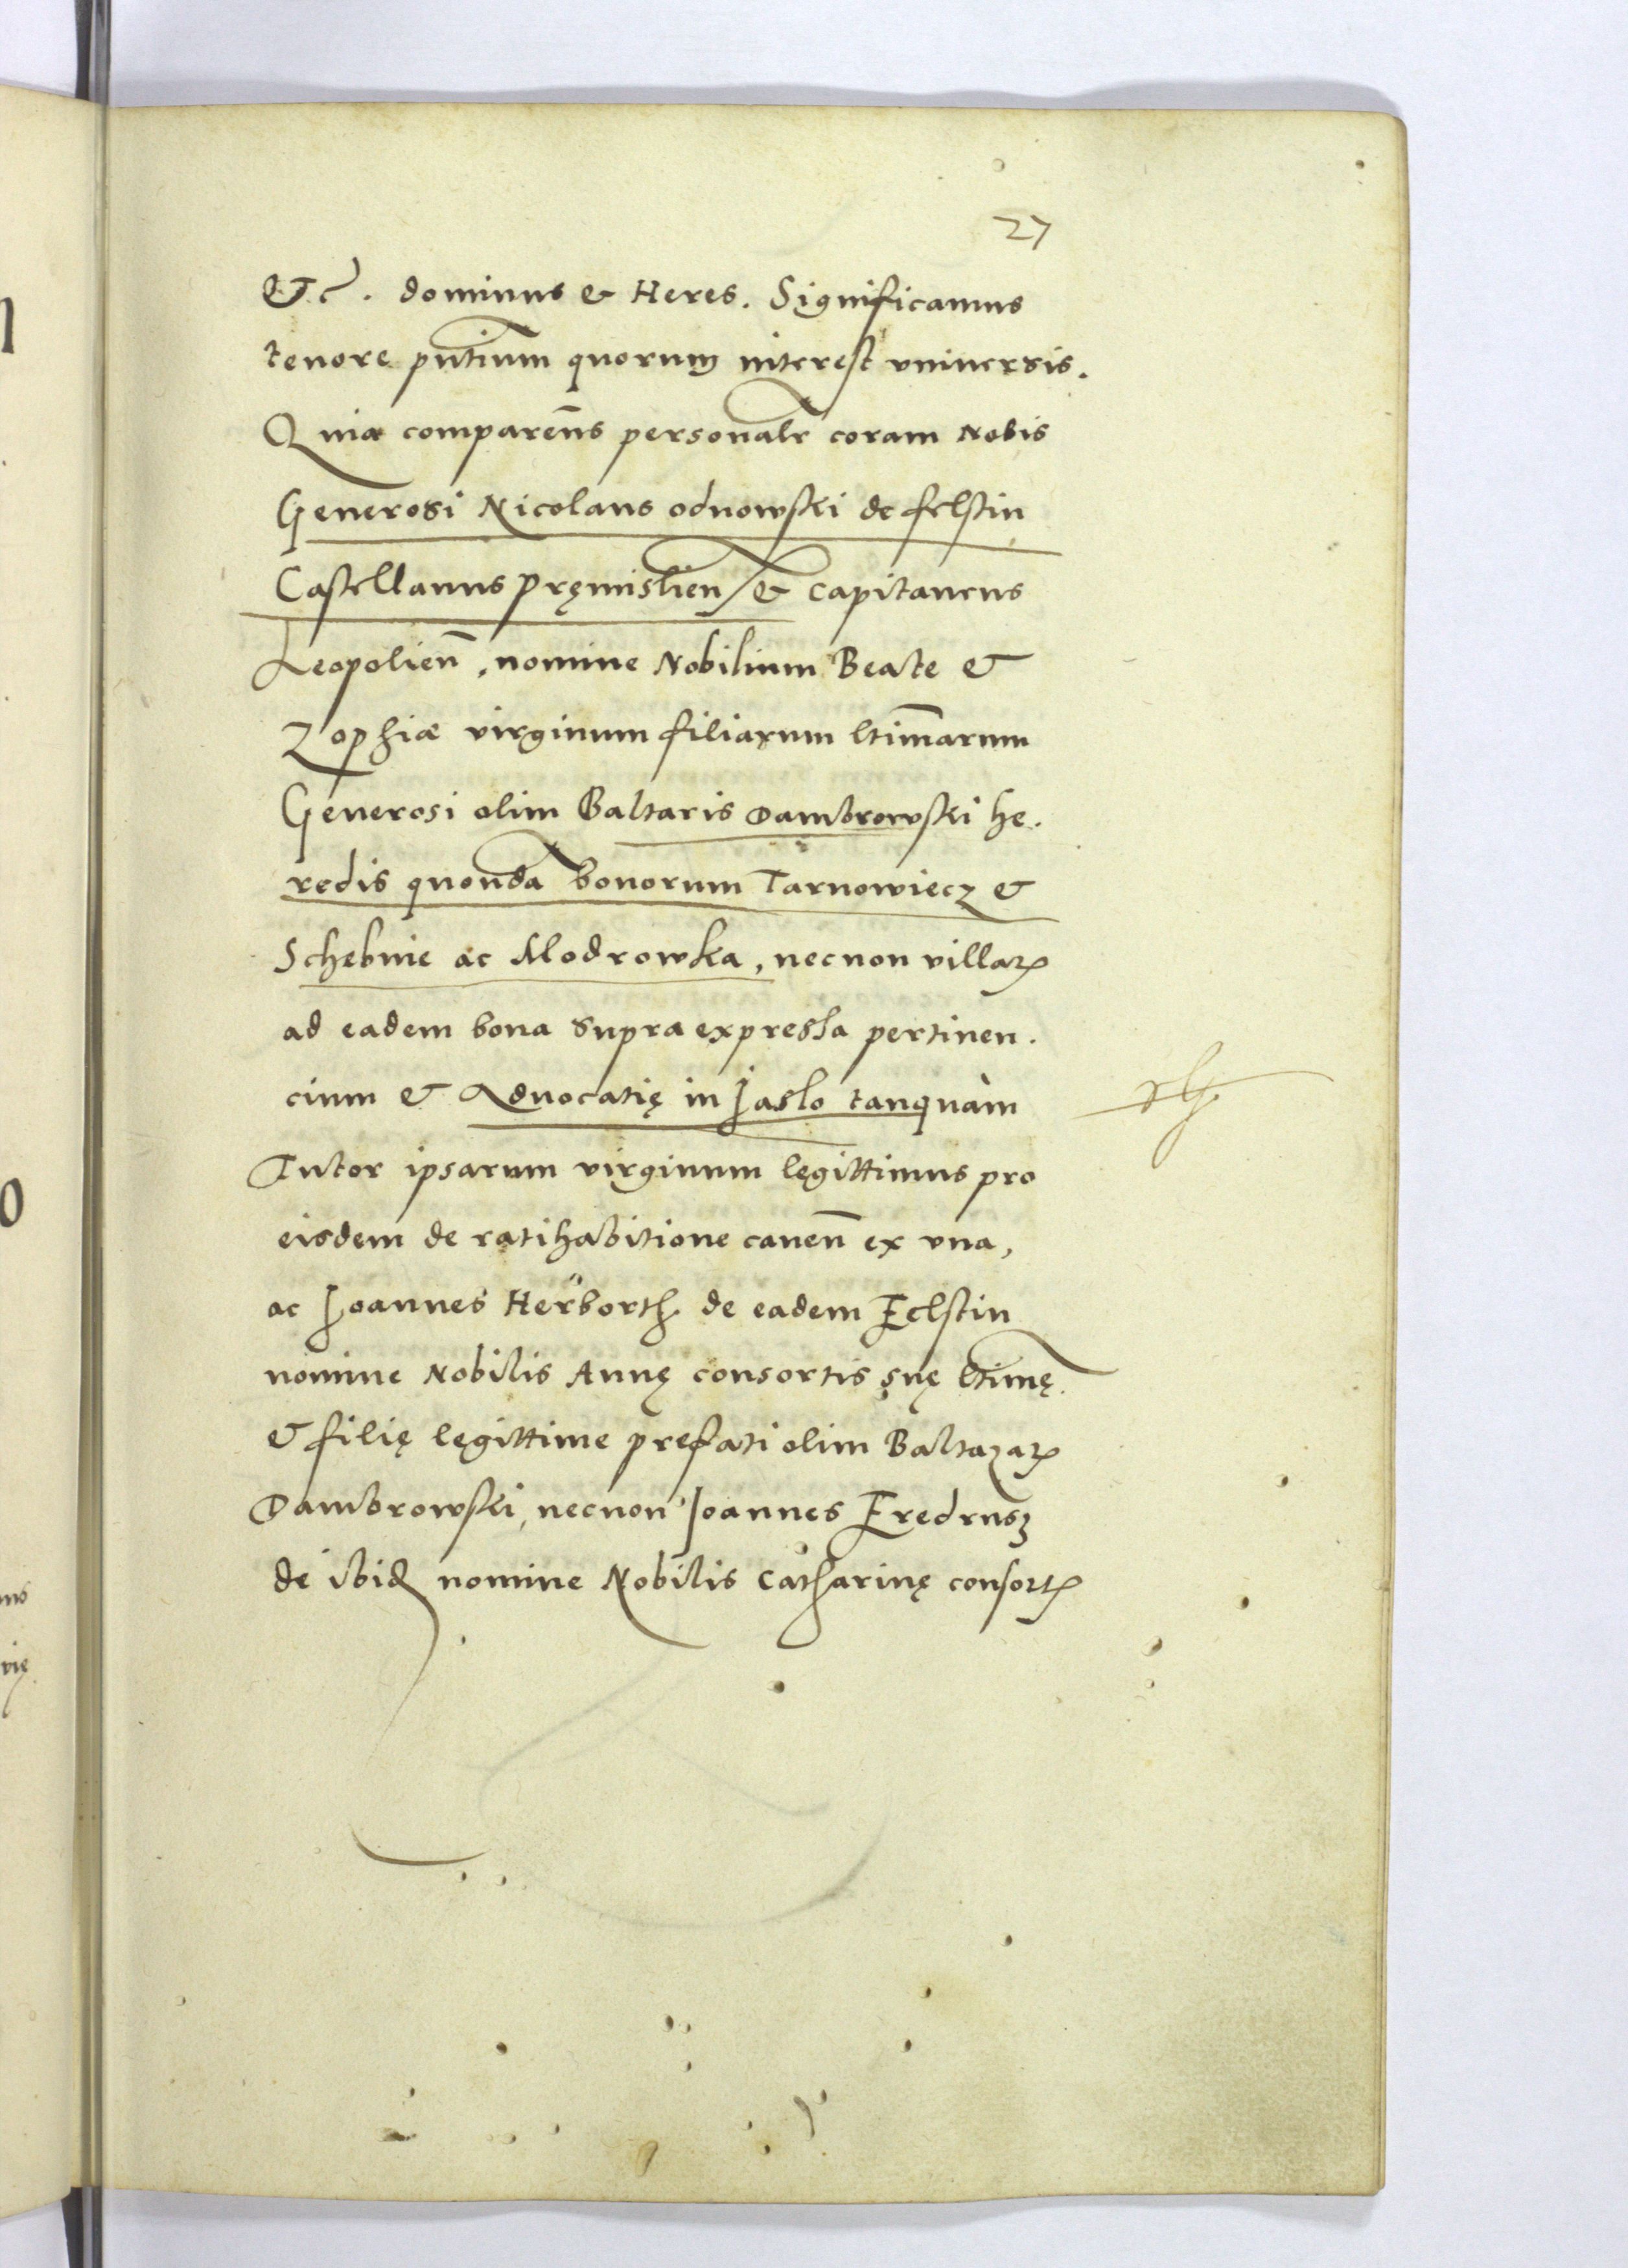 27
&c. dominus & Heres. Significamus
tenore pn̄tium quorum interest vniuersis.
Quia comparen̄s personalr̄ coram Nobis
Generosi Nicolaus odnowski de felstin
Castellanus Pręmislien̄ & Capitaneus
Leopolien̄, nomine Nobilium Beate &
Zophiæ virginum filiarum ltīmarum
Generosi olim Baltaris Dambrowski he.
redis quondā bonorum Tarnowiecz &
Schebnie ac Modrowka, necnon villaꝝ
ad eadem bona supra expressa pertinen.
cium & Aduocatię in Jaslo tanquàm
Tutor ipsarum virginum legittimus pro
eisdem de ratihabitione cauen̄ ex vna,
ac Joannes Herborth de eadem Felstin
nomine Nobilis Annę consortis suę ltīmę
& filię legittime prefati olim Baltazaꝝ
Dambrowski, necnon Joannes Fredrusz
de ibid nomine Nobilis Catharinę consortꝭ